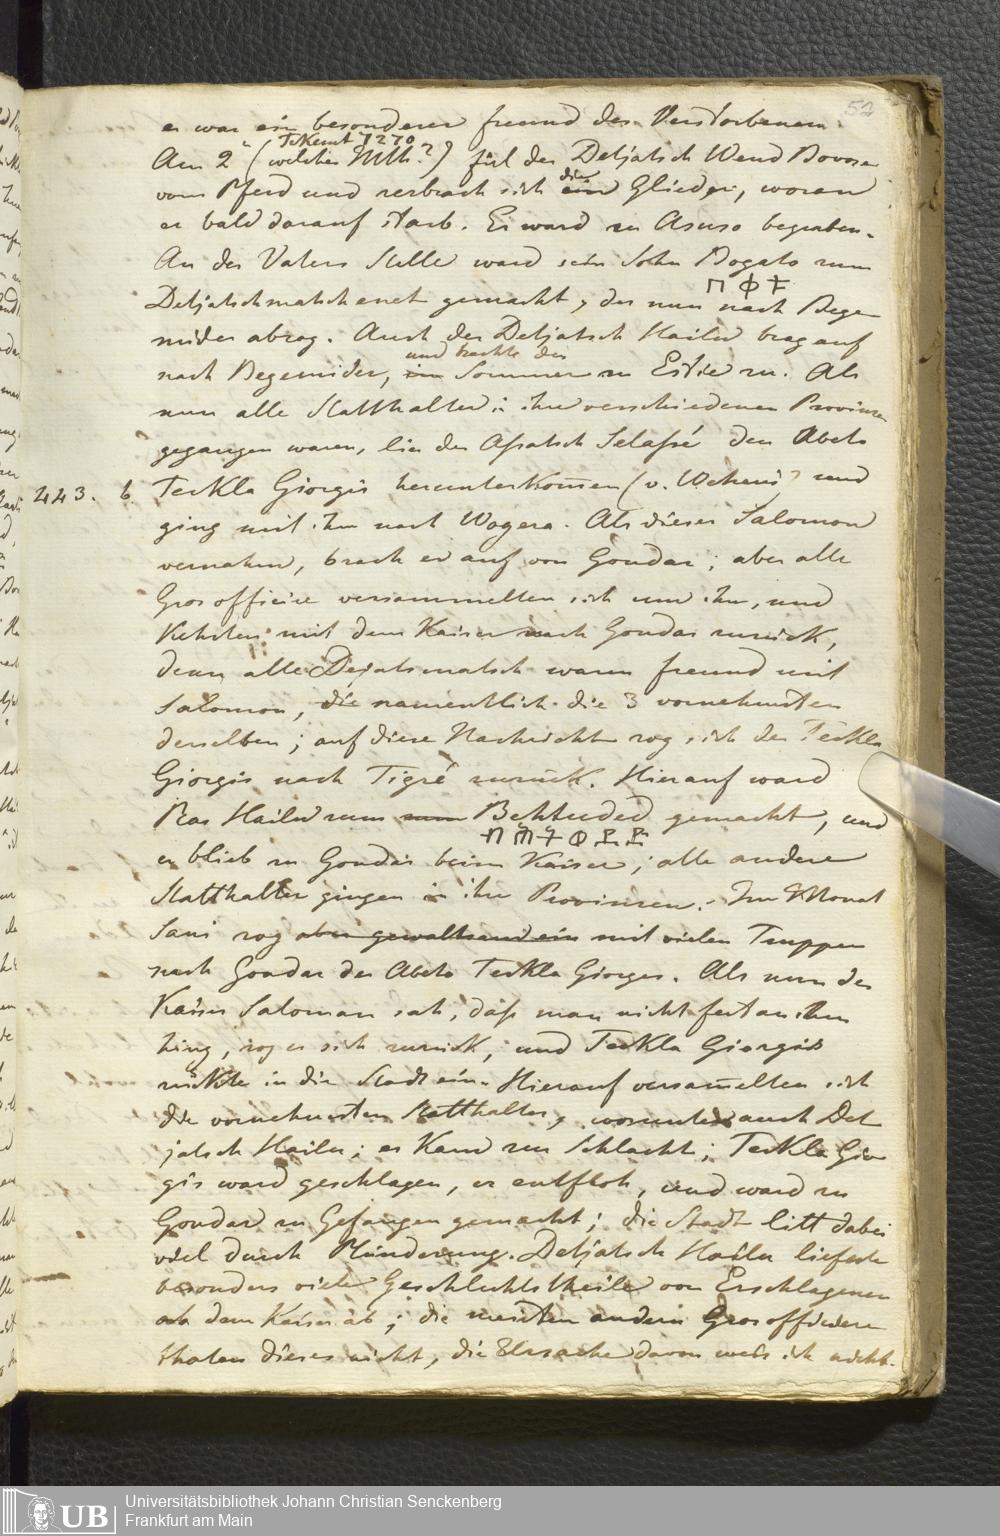 52
er war ein besonderer freund des Verstorbenen.
Tekemt 7270
Am 2ⁿ (welcher Mth.?) fiel der Detjatsch Wend Bovosen
die
vom Pferd und zerbrach sich ein Glieder, woran
er bald darauf starb. Er ward zu Asuso begraben.
An des Vaters Stelle ward sein Sohn Bogato zum
Detjatschmatschenet gemacht, der nun nach Bege
mider abzog. Auch der Detjatsch Hailu brag auf
und brachte den
nach Begemider, im Sommer zu Este zu. Als
nun alle Statthalter in ihre verschiedenen Provinzen
gegangen waren, lies der Asratsch Selassé den Abeto
443. b. Teckla Giorgis herunterkom̄en (v. Weheni) und
ging mit ihm nach Wogera. Als dieses Salomon
vernahm, brach er auf von Gondar; aber alle
Grosofficire versammelten sich um ihn, und
Kehrten mit dem Kaiser nach Gondar zurück,
denn alle Dejatsmatsch waren freund mit
Salomon, die namentlich die 3 vornehmsten
derselben; auf diese Nachricht zog sich der Teckla
Giorgis nach Tigré zurück. Hierauf ward
Ras Hailu zum zum Behtuded gemacht, und
er blieb zu Gondar beim Kaiser; alle andere
Statthalter gingen in ihre Provinzen. Im Monat
Sani zog aber gewaltsam ein mit vielen Truppen
nach Gondar der Abeto Teckla Giorges. Als nun der
Kaiser Saloman sah, dass man nicht fest an ihm
hing, zog er sich zurück, und Teckla Giorgis
rückte in die Stadt ein. Hierauf versam̄elten sich
die vornehmsten Statthalter, worunter auch Det
jatsch Hailu; es Kam zur Schlacht; Teckla Gior
gis ward geschlagen, er entfloh, und ward zu
Gondar zu Gefangen gemacht; die Stadt litt dabei
viel durch Plünderung. Detjatsch Hailu lieferte
besonders viele Geschlechtstheile von Erschlagenen
dem Kaiser ab; die meisten andern Grosofficiere
thaten dieses nicht, die Ursache davon weis ich nicht.
UB
Universitätsbibliothek Johann Christian Senckenberg
Frankfurt am Main